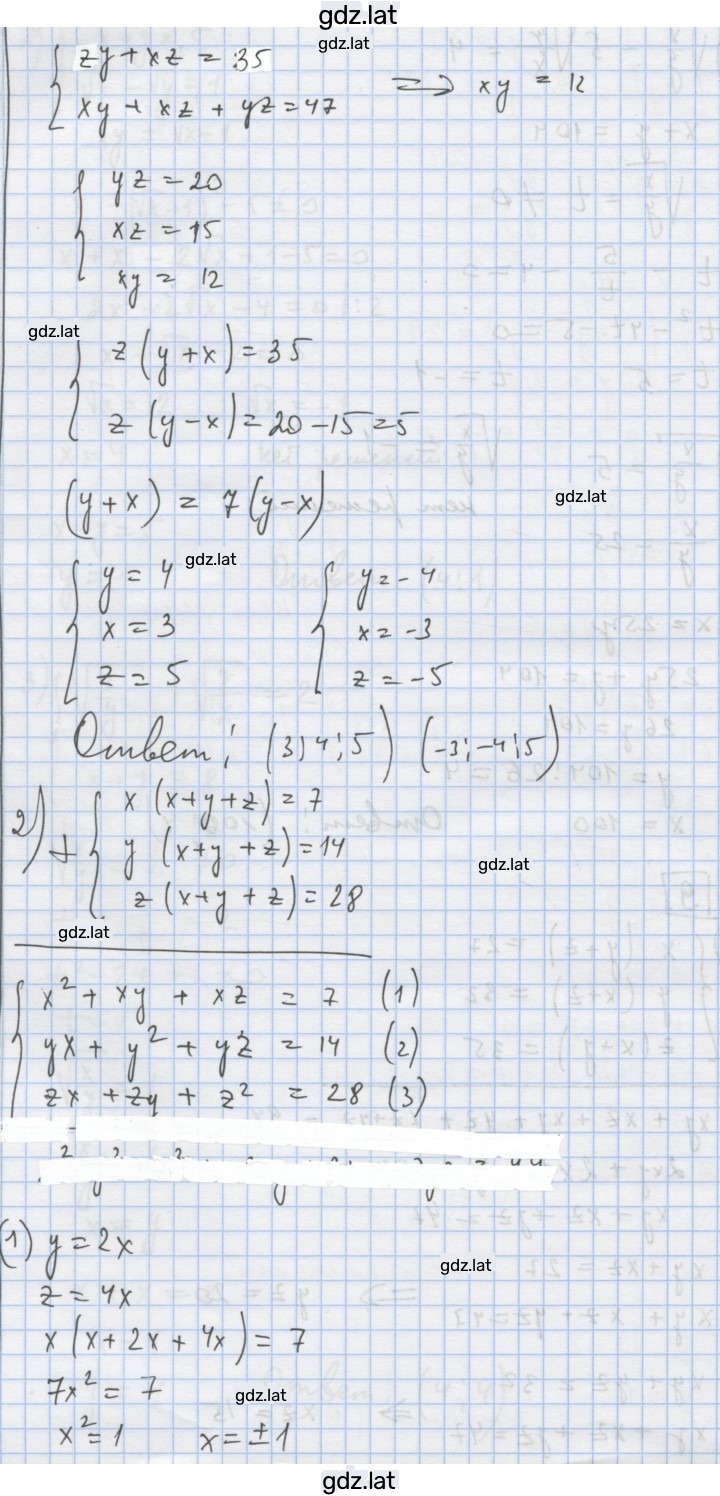 gdz.lat
zy + xz = 35
gdz.lat
xy + xz + yz = 47 => xy = 12
yz = 20
xz = 15
xy = 12
gdz.lat
z (y + x) = 35
z (y - x) = 20 - 15 = 5
(y + x) = 7 (y - x)
gdz.lat
gdz.lat
y = 4 y = -4
x = 3 x = -3
z = 5 z = -5
Ответ: (3; 4; 5) (-3; -4; 5)
2) + x (x + y + z) = 7
y (x + y + z) = 14
gdz.lat
z (x + y + z) = 28
gdz.lat
x² + xy + xz = 7 (1)
yx + y² + yz = 14 (2)
zx + zy + z² = 28 (3)
(1) y = 2x
gdz.lat
z = 4x
x (x + 2x + 4x) = 7
7x² = 7
gdz.lat
x² = 1 x = ±1
gdz.lat